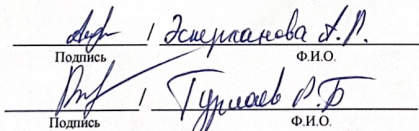 / Эскерханова А. Р.
Подпись Ф.И.О.
/ Гурлаев Р. Б
Подпись Ф.И.О.